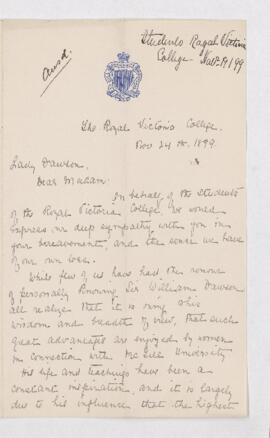 Students Royal Victoria
College Nov 24/99
Ansd.
The Royal Victoria College,
Nov 24th, 1899.
Lady Dawson,
Dear Madam:
In behalf of the students
of the Royal Victoria College, we would
express our deep sympathy with you in
your bereavement, and the sense we have
of our own loss.
While few of us have had the honour
of personally knowing Sir William Dawson
all realize that it is owing to his
wisdom and breadth of view, that such
great advantages are enjoyed by women
in connection with McGill University
His life and teachings have been a
constant inspiration, and it is largely
due to his influence that the highest